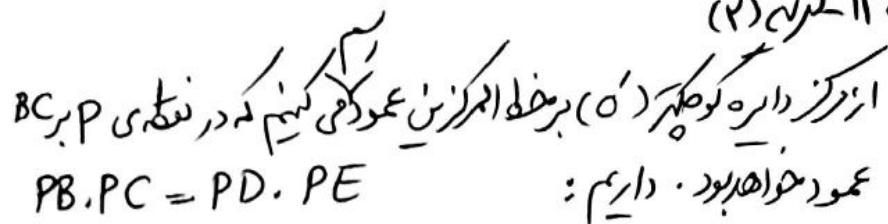 ۱۱- گزینه (۲)
از مرکز دایره کوچکتر (O') بر خط المرکزین عمودی رسم می کنیم که در نقطه ی P بر BC
عمود خواهد بود. داریم: PB.PC = PD.PE